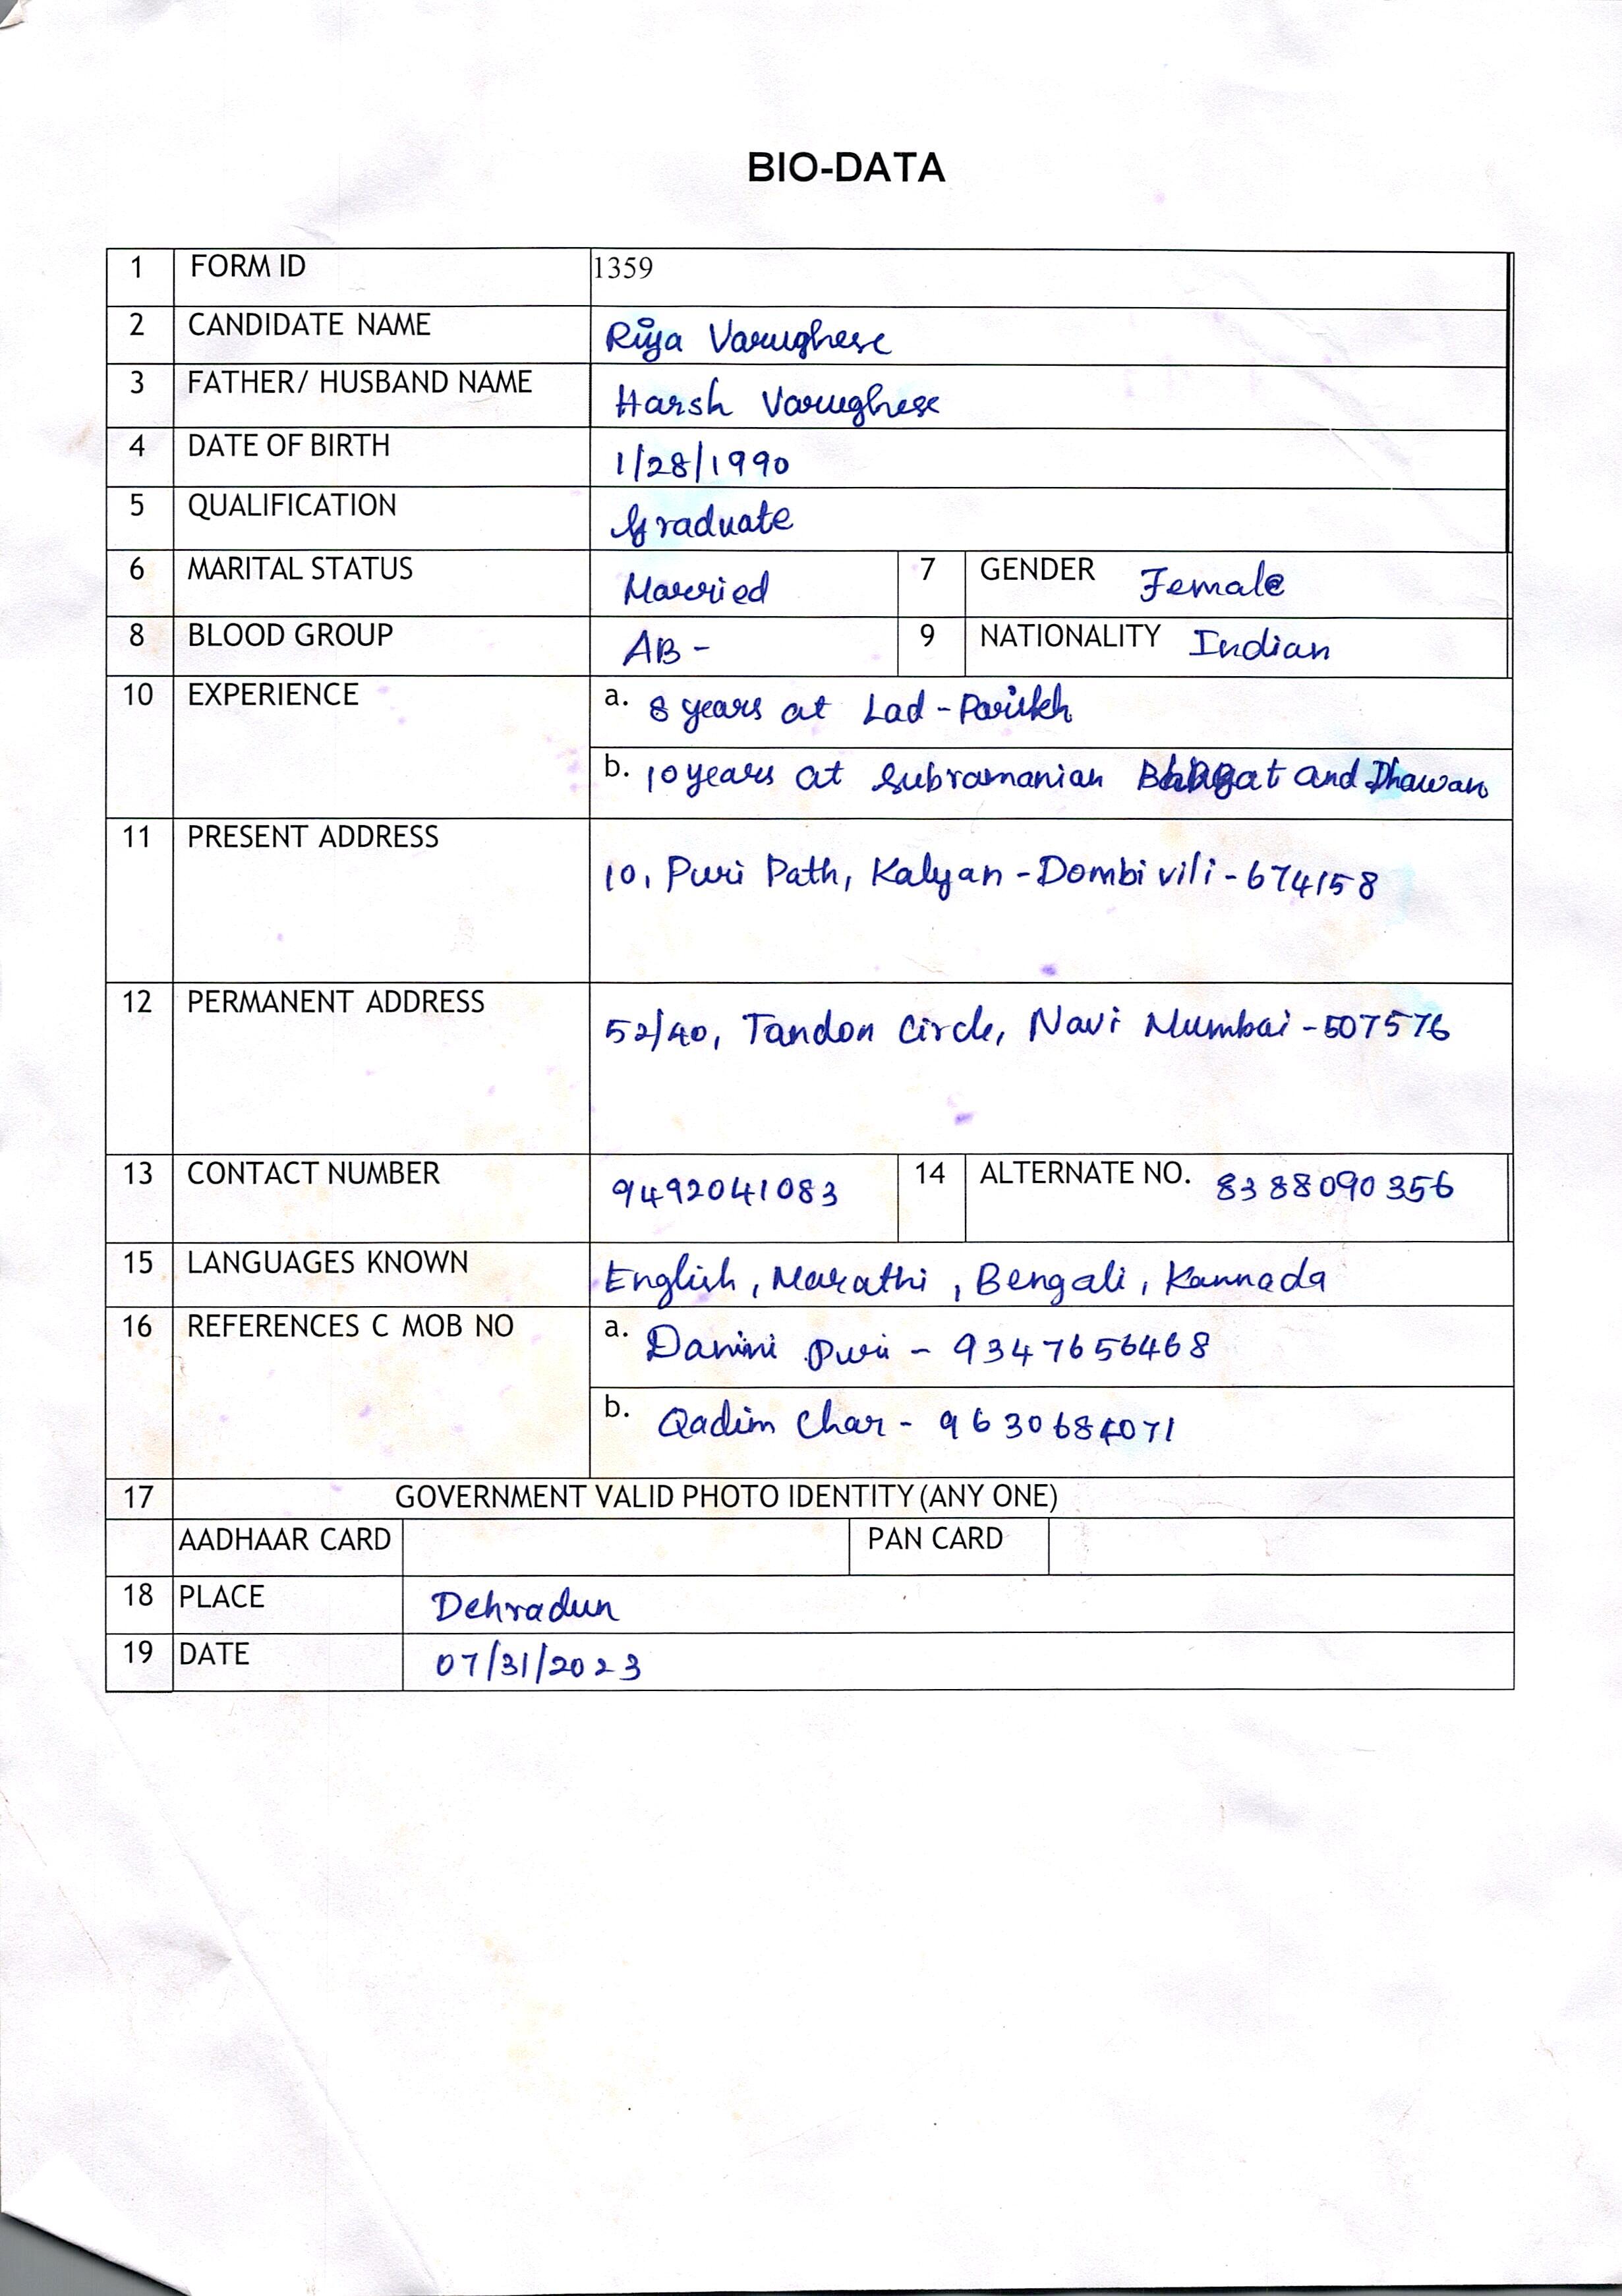 BIO-DATA
1 FORM ID 1359
2 CANDIDATE NAME Riya Varughese
3 FATHER/ HUSBAND NAME Harsh Varughese
4 DATE OF BIRTH 1/28/1990
5 QUALIFICATION Graduate
6 MARITAL STATUS Married 7 GENDER Female
8 BLOOD GROUP AB - 9 NATIONALITY Indian
10 EXPERIENCE a. 8 years at Lad - Parikh
b. 10 years at Subramanian and Dhawan
11 PRESENT ADDRESS
10, Puri Path, Kalyan - Dombivili - 674158
12 PERMANENT ADDRESS
52/40, Tandon Circle, Navi Mumbai - 507576
13 CONTACT NUMBER 9492041083 14 ALTERNATE NO. 8388090356
15 LANGUAGES KNOWN English, Marathi, Bengali, Kannada
16 REFERENCES C MOB NO a. Damini Puri - 9347656468
b. Qadim Char - 9630684071
17 GOVERNMENT VALID PHOTO IDENTITY (ANY ONE)
AADHAAR CARD PAN CARD
18 PLACE Dehradun
19 DATE 07/31/2023